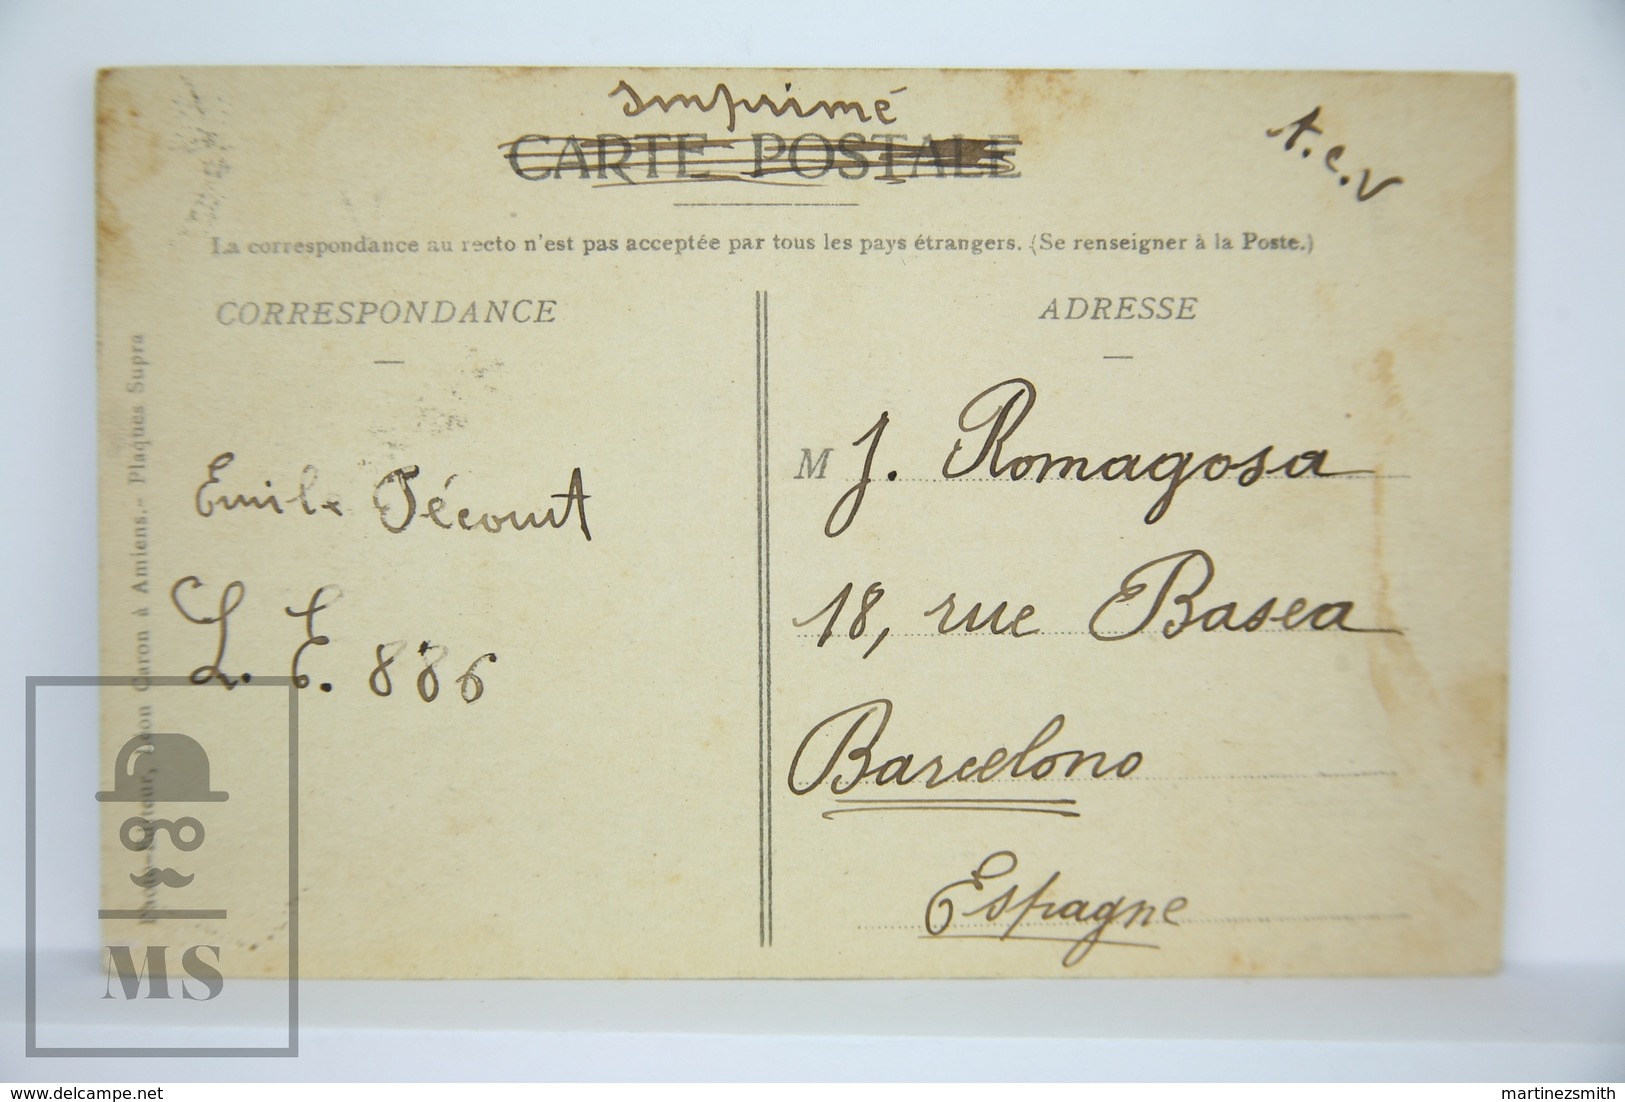 Imprimé
CARTE POSTALE
T.C.V
La correspondance au recto n'est pas acceptée par tous les pays étrangers. (Se renseigner à la Poste.)
CORRESPONDANCE
ADRESSE
Emile Pécourt
L. E. 886
M J. Romagosa
18, rue Basea
Barcelono
Espagne
Photo-Editeur, Léon Caron à Amiens.- Plaques Supra
MS
delcampe.net
martinezsmith